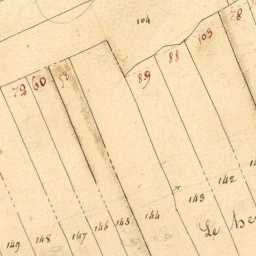 104
78
103
88
89
60
79
142
143
144
145
146
147
148
149
Le